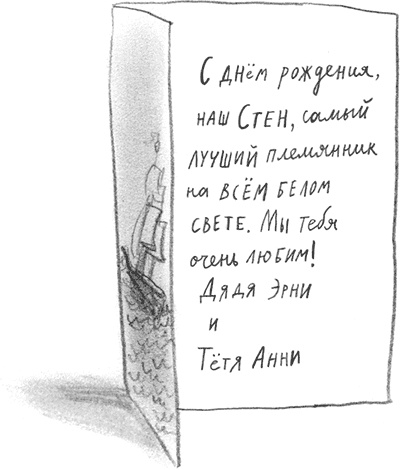 С днём рождения,
наш Стен, самый
лучший племянник
на всём белом
свете. Мы тебя
очень любим!
Дядя Эрни
и
Тётя Анни